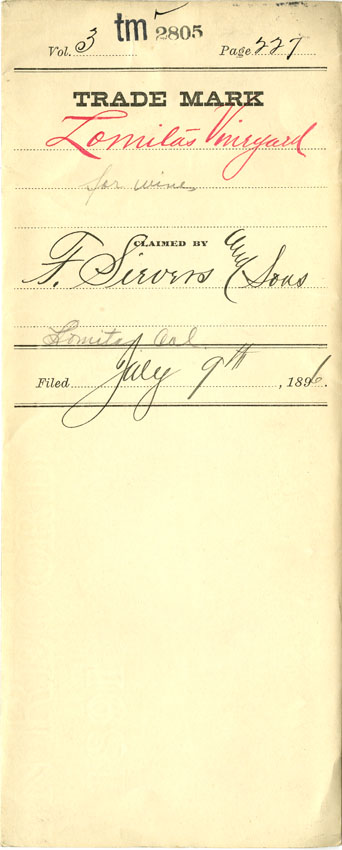 tm 2805
Vol. 3 Page 227
TRADE MARK
Lomitas Vineyard
for wine
CLAIMED BY
F. Sievers and Sons
Lomitas Cal.
Filed July 9th, 1896.